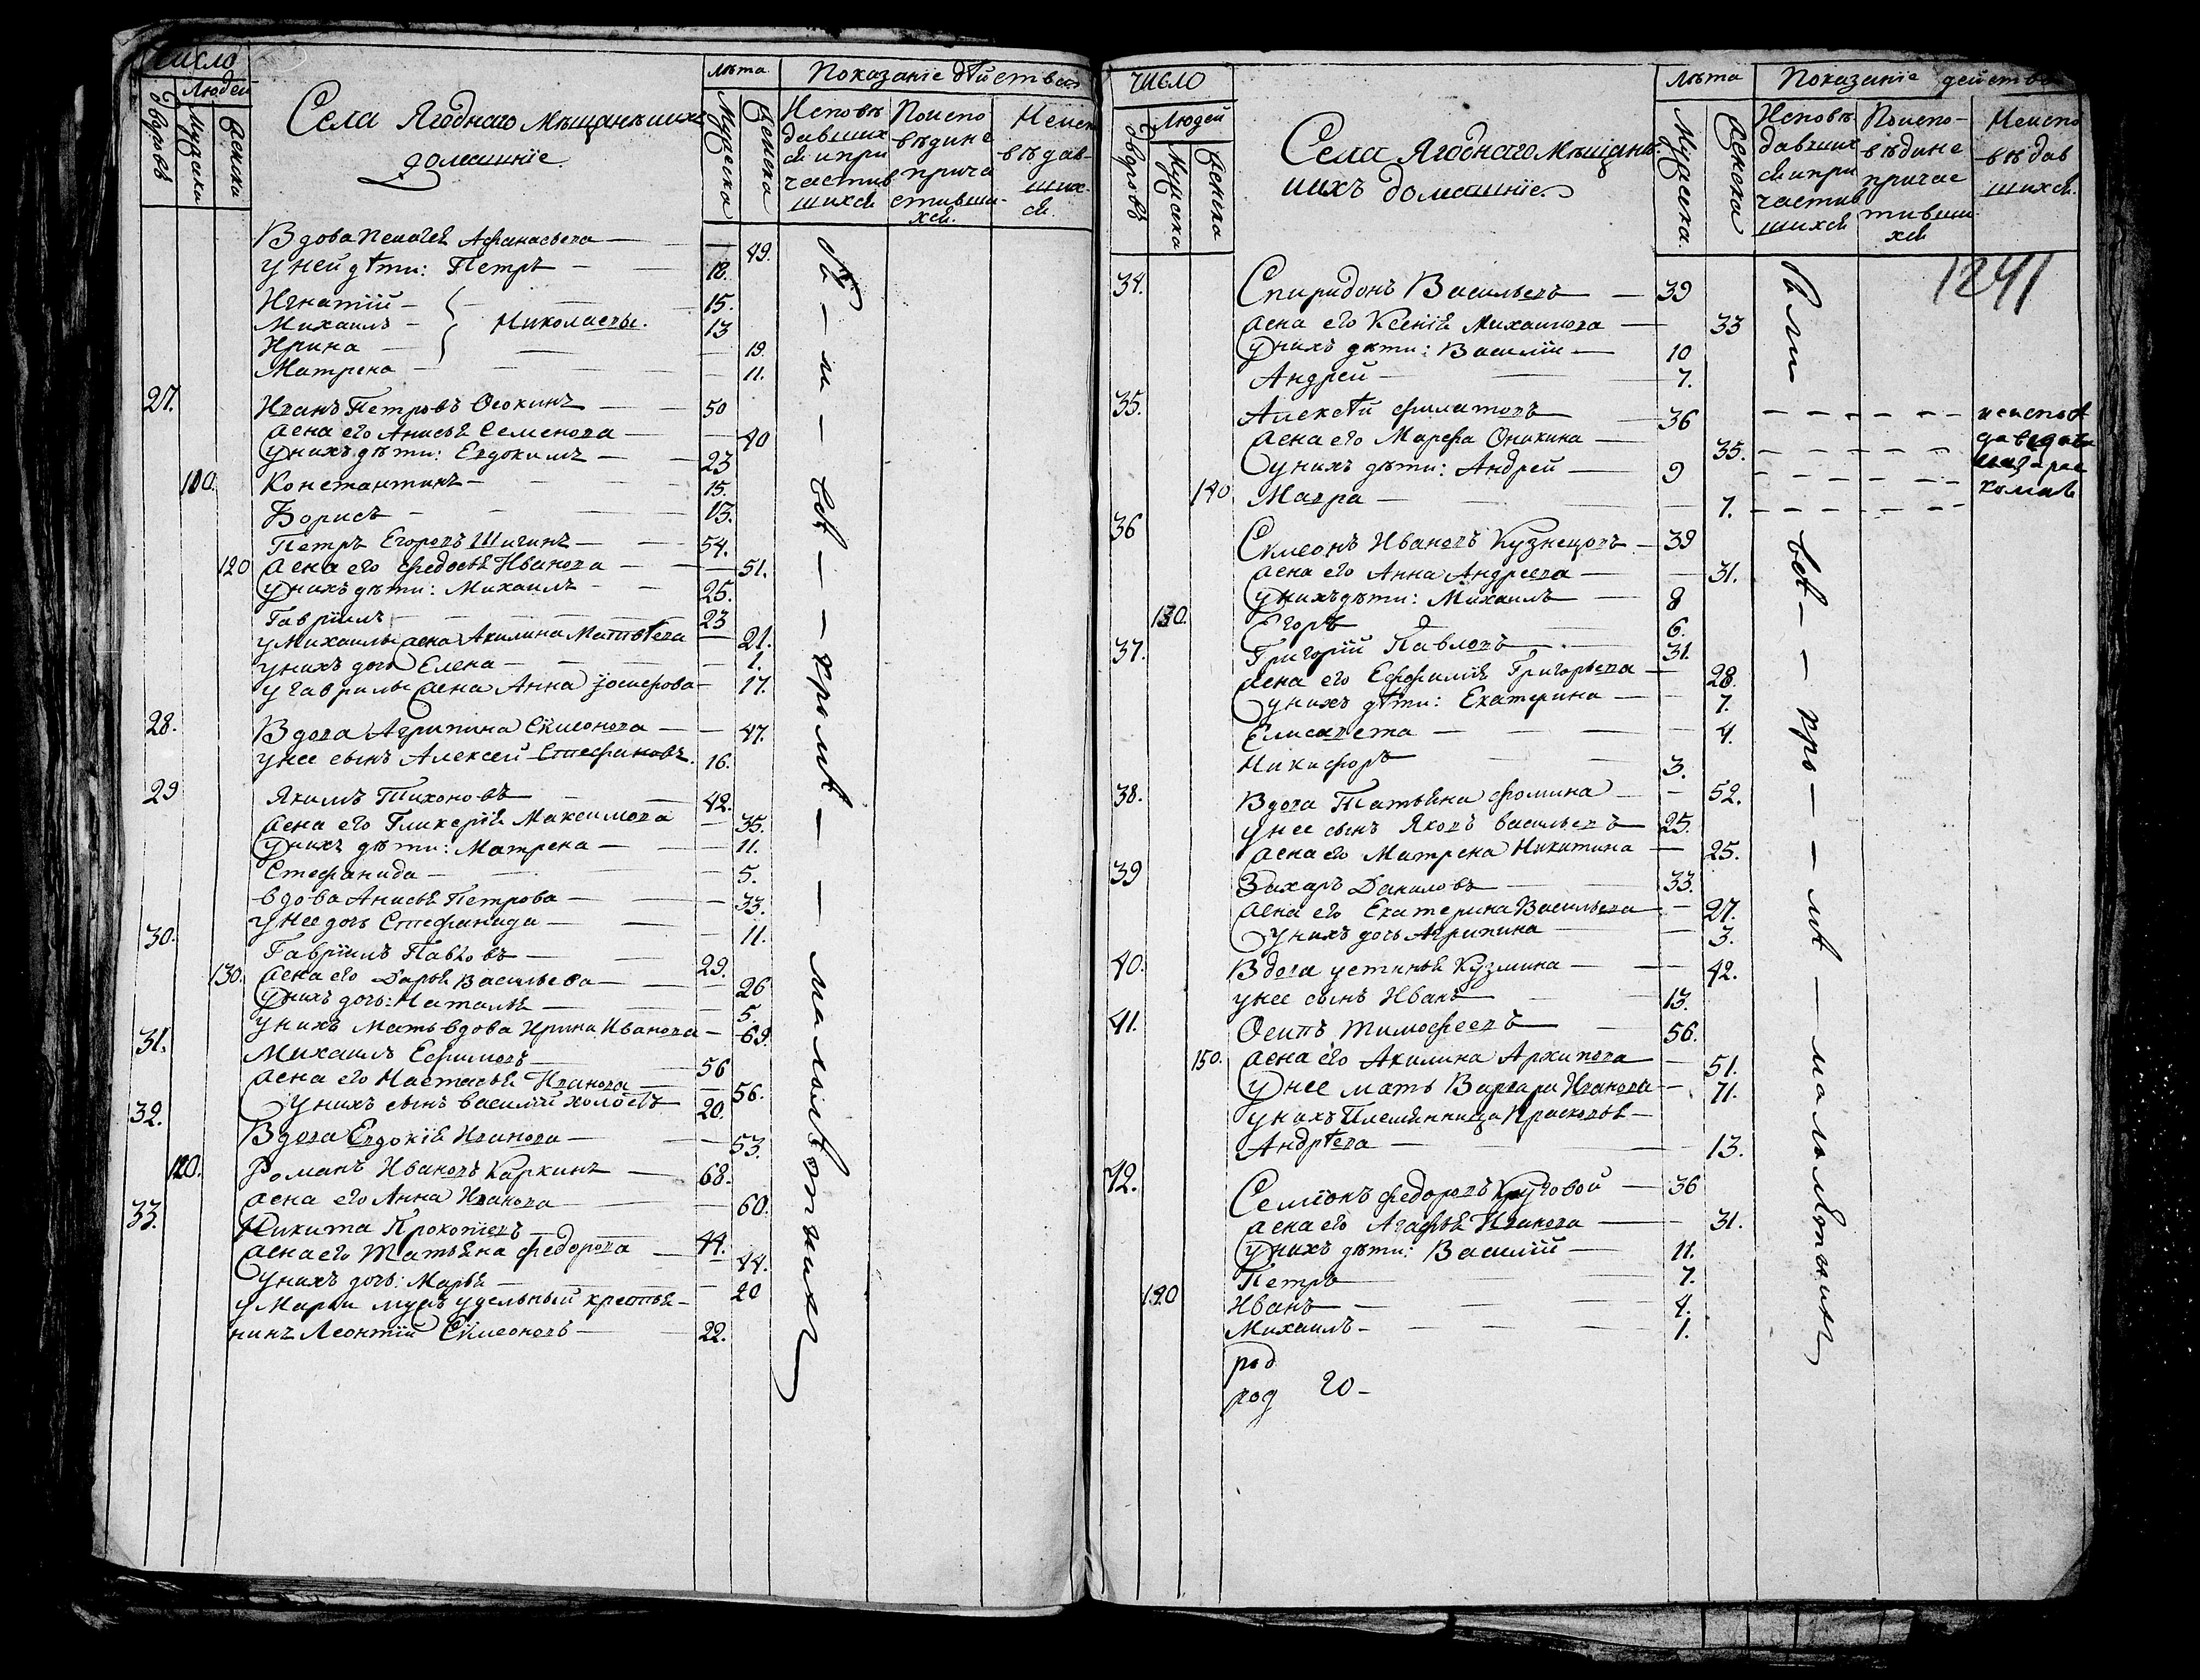 число
Людей
дворовъ
Мужеска
женска
Села Ягоднаго Мѣщанъ ихъ
домашніе
лѣта
Мужеска
женска
Показаніе дѣйства
Исповѣ
давших
ся и при
частив
шихся
Поиспо
вѣдине
прича
стивши-
хся.
Неисп
вѣдав-
ших
ся.
Вдова Пелагея Афанасьева — — 49.
у ней дѣти: Петръ — 18.
Игнатій — 15.
Михаилъ — Николаевы. 13
Ирина — 19.
Матрена — 11.
27. Иванъ Петровъ Осокинъ — 50
жена его Анисья Семенова — 40
у нихъ дѣти: Евдокимъ — 23
110. Константинъ — 15.
Борисъ — 13.
Петръ Егоровъ Шигинъ — 54.
120 жена его Федосья Иванова — 51.
у нихъ дѣти: Михаилъ — 25.
Гавріилъ — 23
у Михаилы жена Акилина Матвѣева — 21.
у нихъ дочь Елена — 1.
у Гаврилы жена Анна Іосифова — 17.
28. Вдова Агрипина Симеонова — 47.
у нее сынъ Алексей Стефановъ. 16.
29 Якимъ Тихоновъ — 42.
жена его Гликерія Максимова — 35.
у нихъ дѣти: Матрена — 11.
Стефанида — 5.
вдова Анисья Петрова — 33.
у нее дочь Стефанида — 11.
30. Гавріилъ Павловъ — 29.
130. жена его Дарья Васильева — 26
у нихъ дочь: Наталья — 5.
у нихъ мать вдова Ирина Иванова — 69.
31. Михаилъ Ефимовъ — 56
жена его Настасья Иванова — 56.
у нихъ сынъ Василий холостъ 20.
32. Вдова Евдокія Иванова — 53.
120. Романъ Ивановъ Каркинъ — 68.
жена его Анна Иванова — 60.
33. Никита Прокопіевъ — 44.
жена его Татьяна Федорова — 44.
у нихъ дочь: Марья — 20
у Марьи мужъ удельный крестья-
нинъ Леонтій Симеоновъ — 22.
бы — ли — всѣ — кромѣ — малолѣтнихъ
число
Людей
дворовъ
Мужеска
женска
Села Ягоднаго Мѣщанъ.
ихъ домашніе.
лѣта
Мужеска.
женска
Показаніе действа
Исповѣ
давших
ся и при
частив
шихся
Поиспо-
вѣдине
причас
тивши
хся
Неиспо
вѣдав
шихся.
1241
34. Спиридонъ Васильевъ — 39
жена его Ксенія Михаилова — 33
у нихъ дѣти: Василіи — 10
Андрей — 7.
35. Алексѣй Филатовъ — 36
жена его Марфа Оникина — 35.
у нихъ дѣти: Андрей — 9
140 Мавра — 7.
36 Симеонъ Ивановъ Кузнецовъ — 39
жена его Анна Андреева — 31.
у нихъ дѣти: Михаилъ — 8
130. Егоръ — 6.
37. Григорій Павловъ — 31.
жена его Ефимія Григорьева — 28.
у нихъ дѣти: Екатерина — 7.
Елисавета — 4.
Никифоръ 3.
38. Вдова Татьяна Фомина — 52.
у нее сынъ Яковъ Васильевъ — 25.
жена его Матрена Никитина — 25.
39 Захаръ Даниловъ — 33.
жена его Екатерина Васильева — 27.
у нихъ дочь Агрипина — 3.
40. Вдова Устинья Кузмина — 42.
у нее сынъ Иванъ — 13.
41. Осипъ Тимофеевъ — 56.
150. жена его Акилина Архипова — 51.
у нее мать Варвара Иванова — 71.
у нихъ Племянница Прасковья —
Андрѣева — 13.
42. Семіонъ Федоровъ Круговой — 36
жена его Агафья Иванова — 31.
у нихъ дѣти: Василій — 11.
Петръ 7.
120 Иванъ — 4.
Михаилъ — 1.
род
род 20 —
были
всѣ — кро — мѣ — малолѣтнихъ